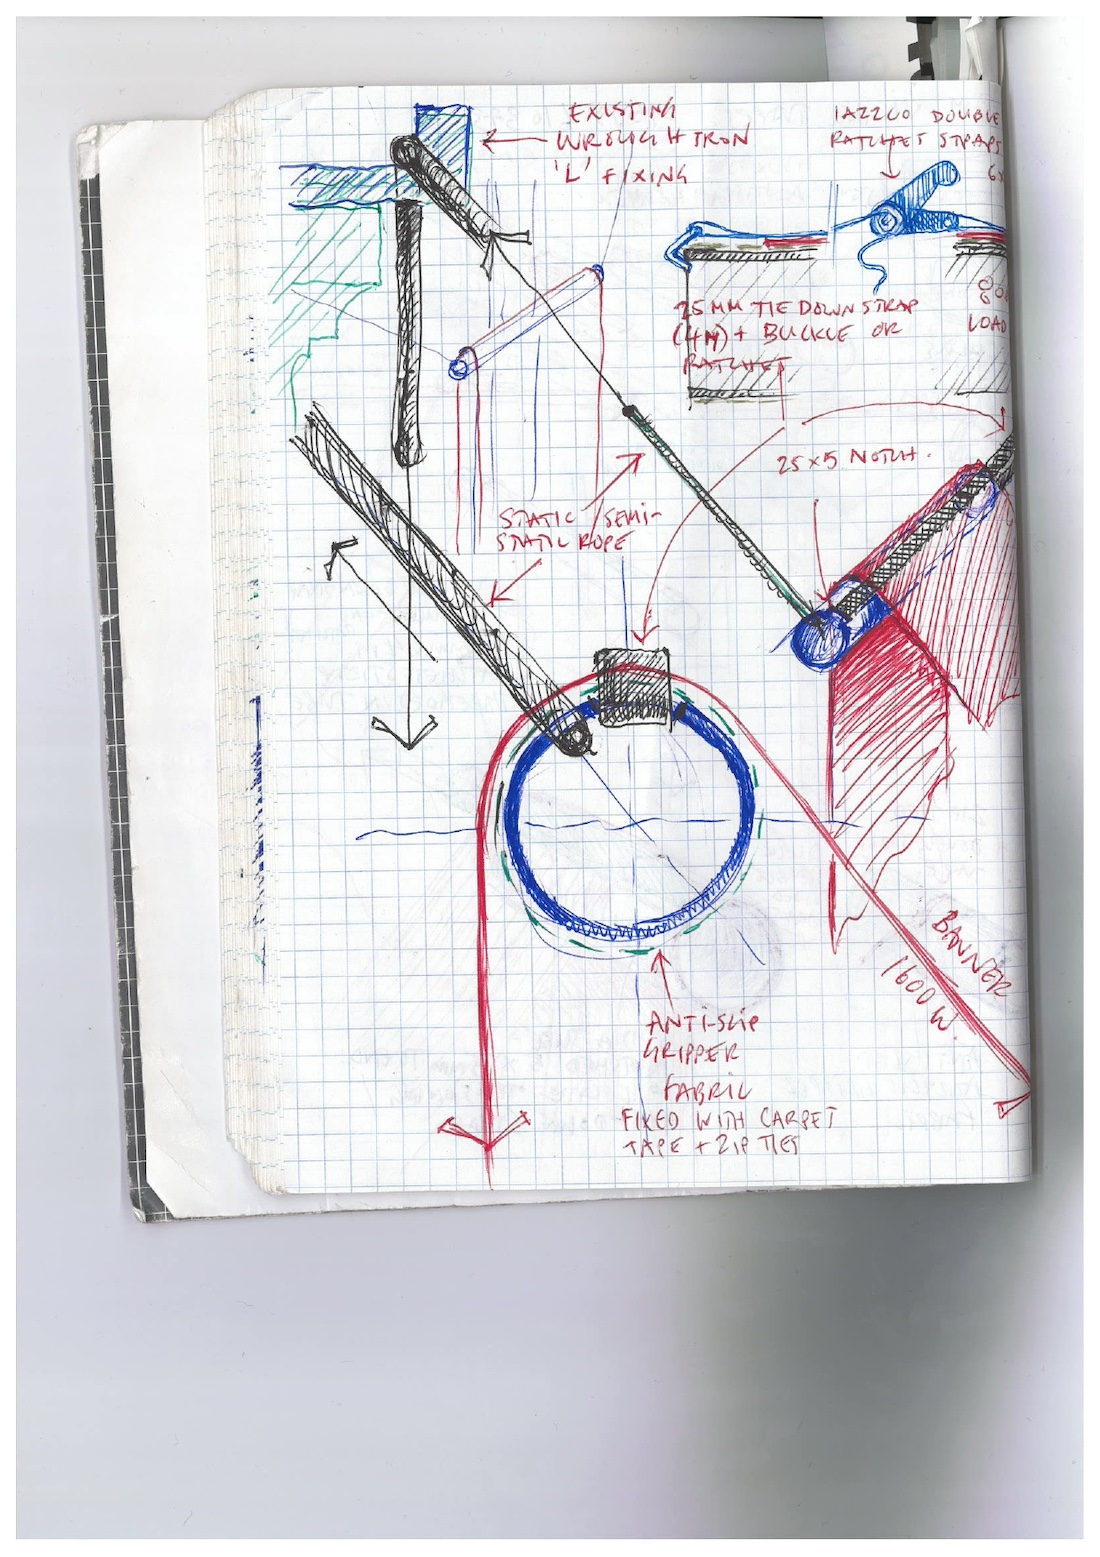 EXISTING
WROUGHT IRON
'L' FIXING
DOUBLE
RATCHET STRAPS
25MM TIE DOWN STRAP
(4M) + BUCKLE OR
RATCHET
LOAD
25x5 NOTCH.
STATIC / SEMI-
STATIC ROPE
BANNER
1600 W
ANTI-SLIP
GRIPPER
FABRIC
FIXED WITH CARPET
TAPE + ZIP TIES